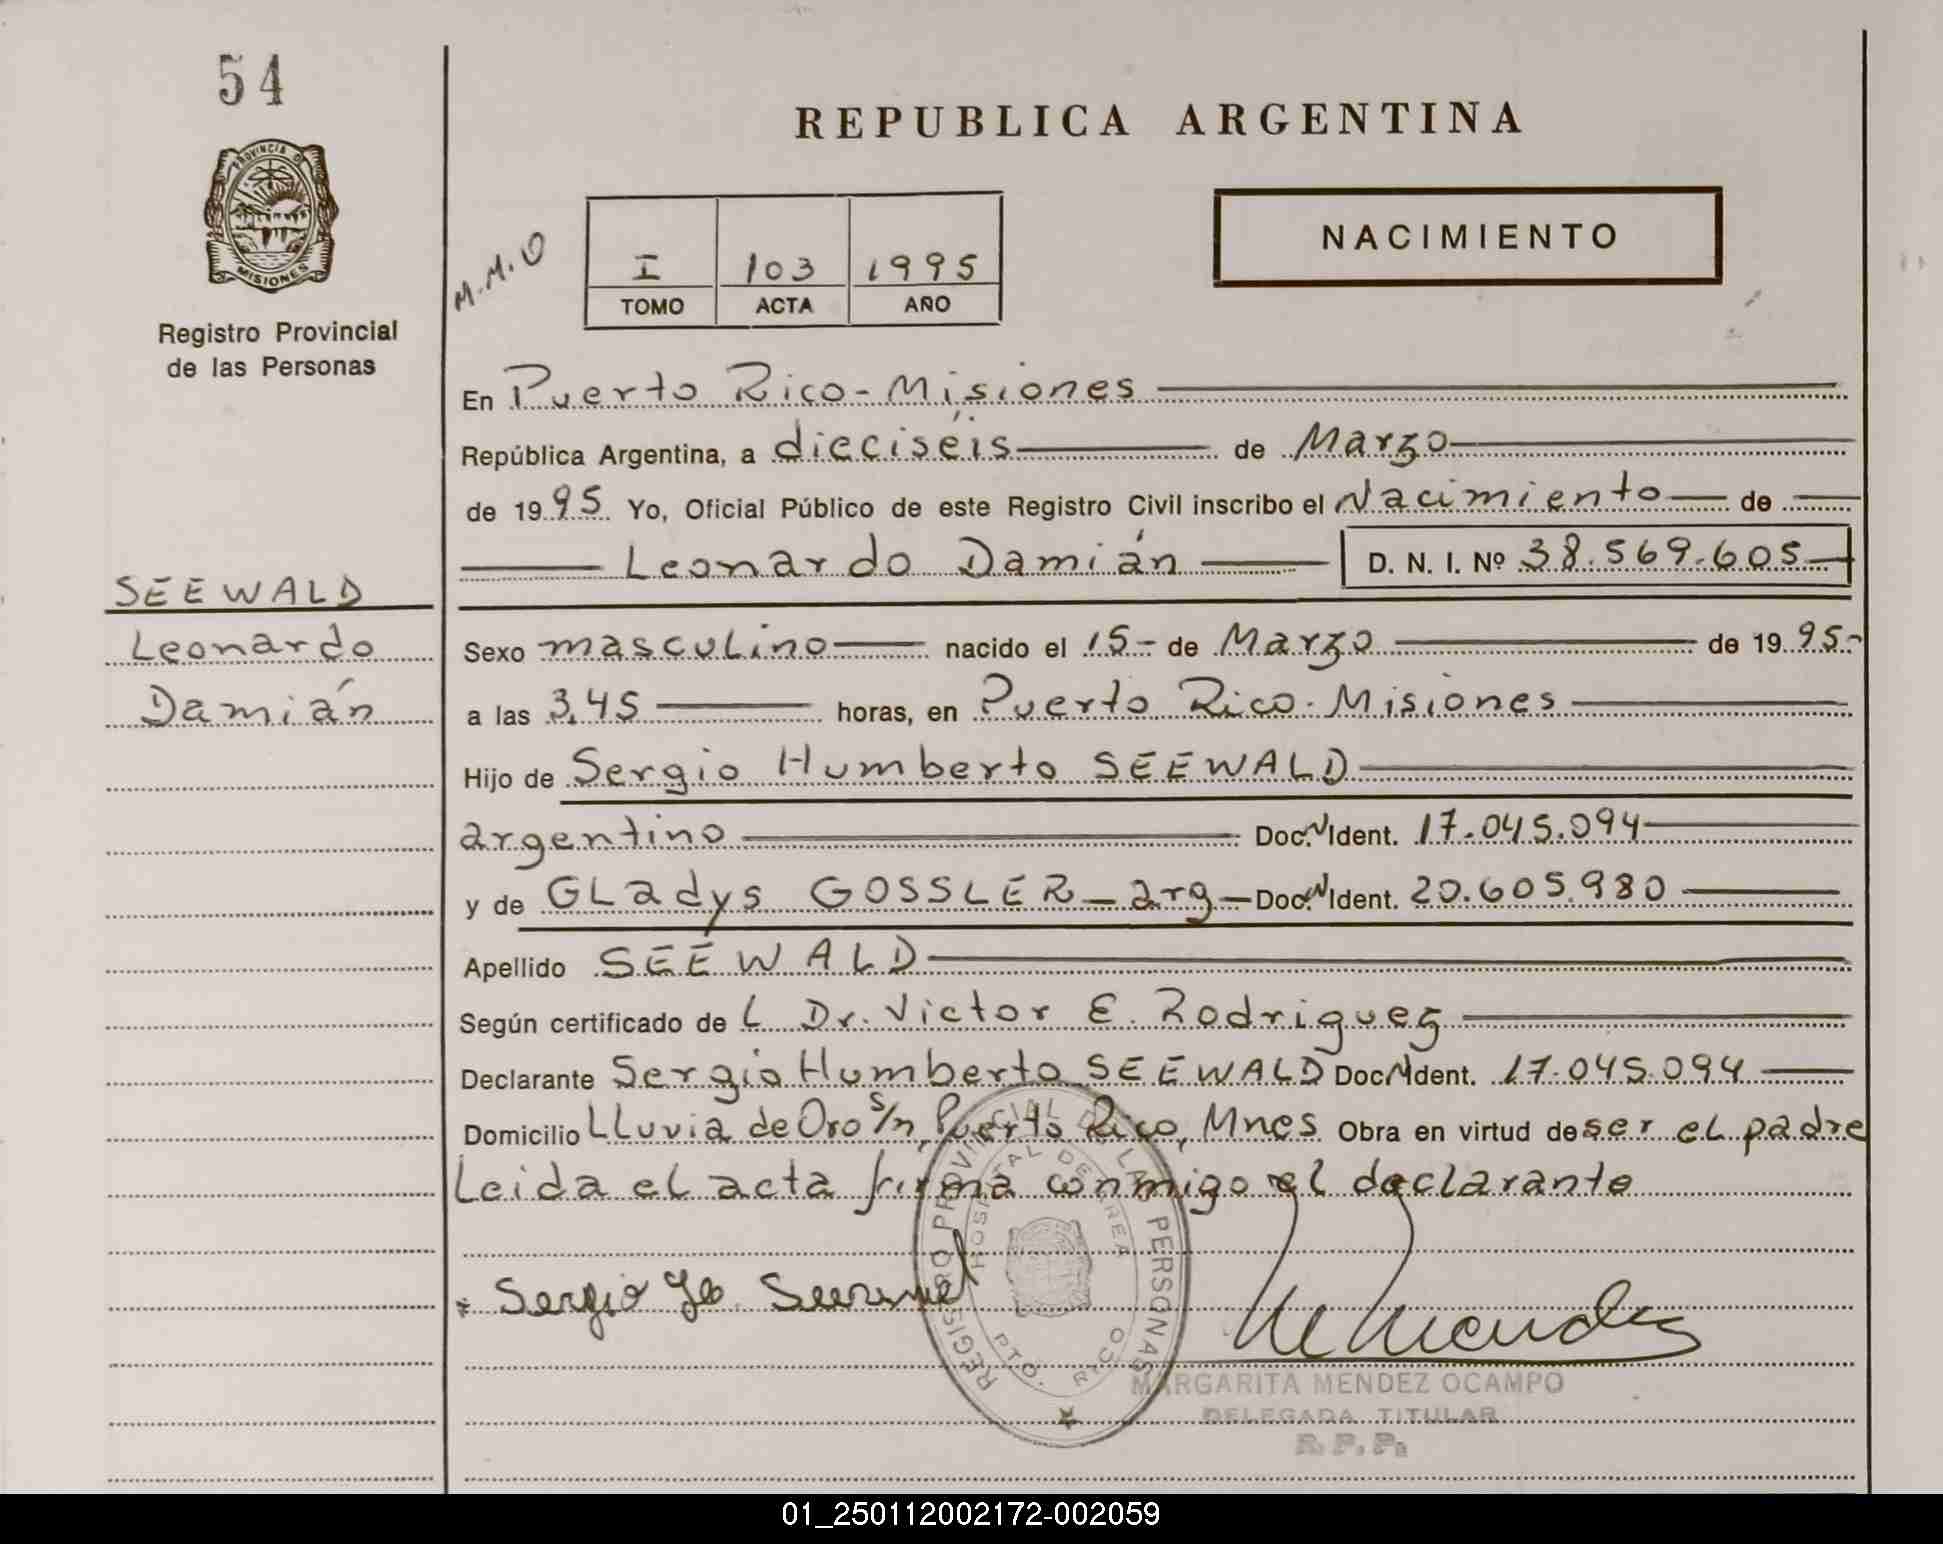 54
PROVINCIA DE
MISIONES
Registro Provincial
de las Personas
REPUBLICA ARGENTINA
M.M.O
I 103 1995
TOMO ACTA AÑO
NACIMIENTO
En Puerto Rico - Misiones
República Argentina, a dieciséis de Marzo
de 1995 Yo, Oficial Público de este Registro Civil inscribo el Nacimiento de
Leonardo Damián D. N. I. Nº 38.569.605
SEEWALD
Leonardo
Damián
Sexo masculino nacido el 15 - de Marzo de 1995 -
a las 3,45 horas, en Puerto Rico - Misiones
Hijo de Sergio Humberto SEEWALD
argentino Doc. N Ident. 17.045.094
y de GLadys GOSSLER - arg - Doc. N Ident. 20.605.980
Apellido SEEWALD
Según certificado de L Dr. Victor E. Rodriguez
Declarante Sergio Humberto SEEWALD Doc N Ident. 17.045.094
Domicilio LLuvia de Oro s/n, Puerto Rico, Mnes Obra en virtud de ser el padre
Leida el acta firma conmigo el declarante
Sergio
REGISTRO PROVINCIAL DE LAS PERSONAS
HOSPITAL DE AREA
PTO. RICO
M Mendez
MARGARITA MENDEZ OCAMPO
DELEGADA TITULAR
R. P. P.
01_250112002172-002059